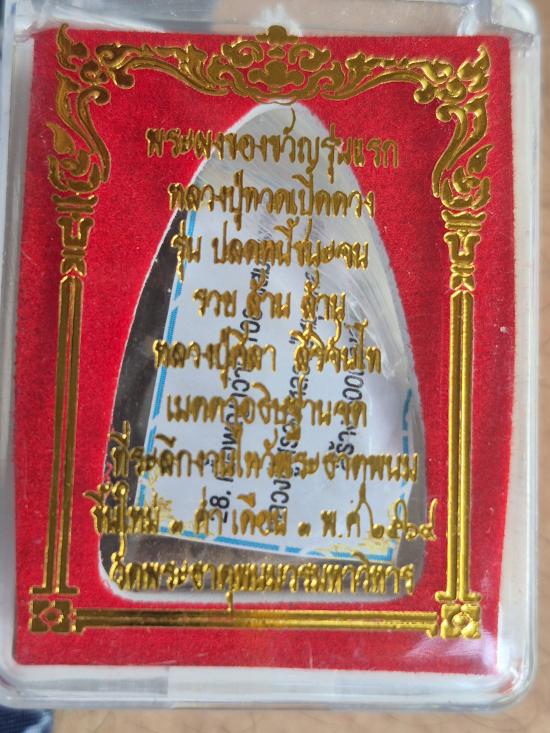 พระผงของขวัญรุ่นแรก
หลวงปู่ทวดเปิดดวง
รุ่น ปลดหนี้ชนะจน
รวย ล้าน ล้าน
หลวงปู่ศิลา สิริจันโท
เมตตาอธิษฐานจิต
ที่ระลึกงานไหว้พระธาตุพนม
ปีใหม่ ๑ ค่ำ เดือน ๑ พ.ศ ๒๕๖๔
วัดพระธาตุพนมวรมหาวิหาร
8.